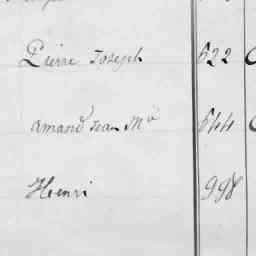 Pierre Joseph 522
Amand Jean Mie 544
Henri 998